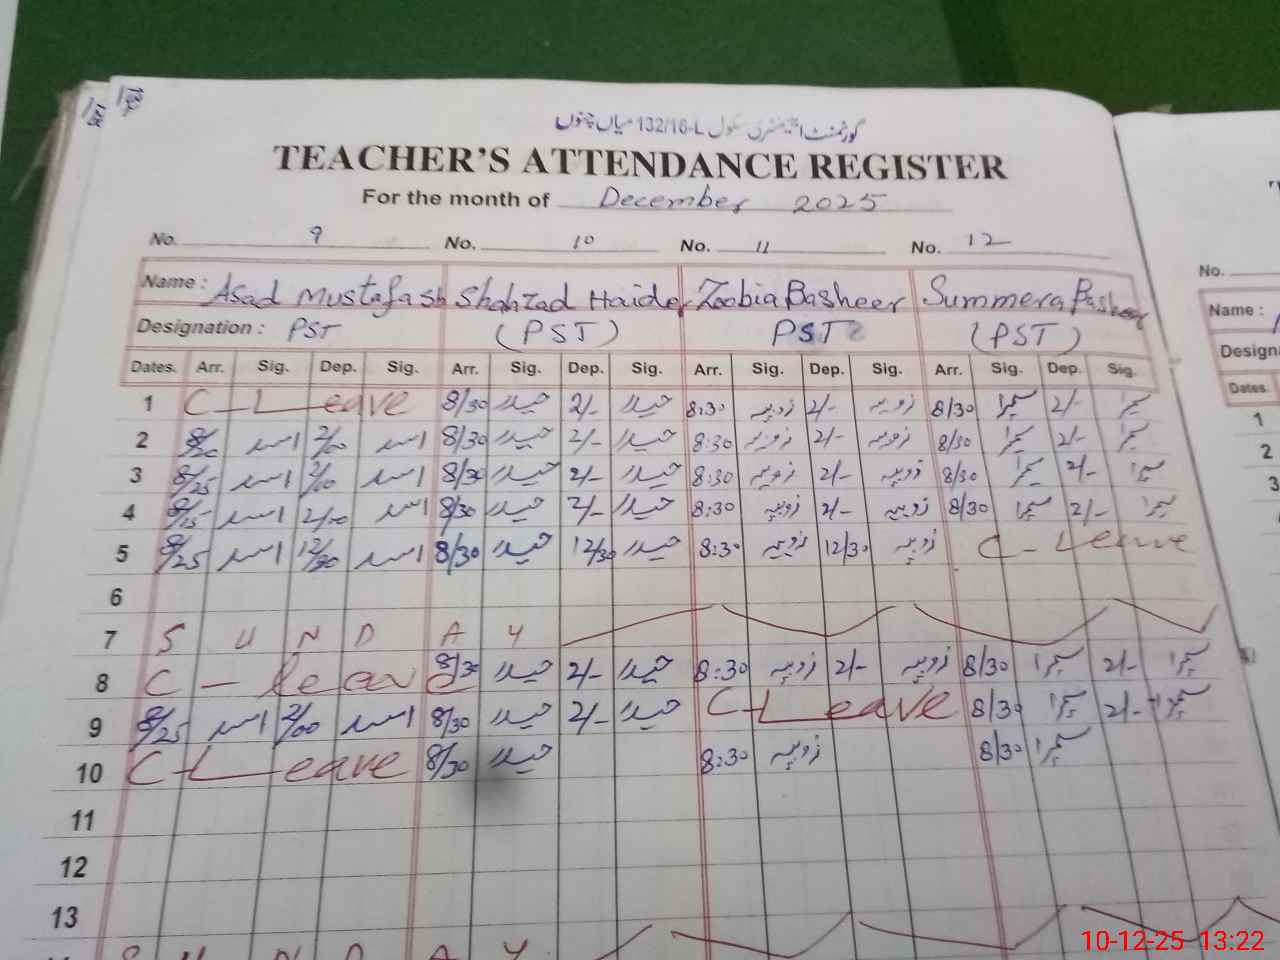 گورنمنٹ ایلیمنٹری سکول 132/16-L میاں چنوں
TEACHER'S ATTENDANCE REGISTER
For the month of December 2025
No. 9 No. 10 No. 11 No. 12
Name : Asad Mustafa Sh Shahzad Haider Zoobia Basheer Summera Basheer
Designation : PST (PST) PST (PST)
Dates. Arr. Sig. Dep. Sig. Arr. Sig. Dep. Sig. Arr. Sig. Dep. Sig. Arr. Sig. Dep. Sig.
1 C-Leave 8/30 حیدر 2/- حیدر 8:30 زوبیہ 2/- زوبیہ 8/30 سمیرا 2/- سمیرا
2 اسد 2/00 اسد 8/30 حیدر 2/- حیدر 8:30 زوبیہ 2/- زوبیہ 8/30 سمیرا 2/- سمیرا
3 8/25 اسد 2/00 اسد 8/30 حیدر 2/- حیدر 8:30 زوبیہ 2/- زوبیہ 8/30 سمیرا 2/- سمیرا
4 8/15 اسد 2/00 اسد 8/30 حیدر 2/- حیدر 8:30 زوبیہ 2/- زوبیہ 8/30 سمیرا 2/- سمیرا
5 8/25 اسد 12/30 اسد 8/30 حیدر 12/30 حیدر 8:30 زوبیہ 12/30 زوبیہ C-Leave
6
7 SUNDAY
8 C-leave 8/30 حیدر 2/- حیدر 8:30 زوبیہ 2/- زوبیہ 8/30 سمیرا 2/- سمیرا
9 8/25 اسد 2/00 اسد 8/30 حیدر 2/- حیدر C-Leave 8/30 سمیرا 2/- سمیرا
10 C-Leave 8/30 حیدر 8:30 زوبیہ 8/30 سمیرا
11
12
13
SUNDAY
No.
Name :
Design
Dates.
1
2
3
10-12-25 13:22